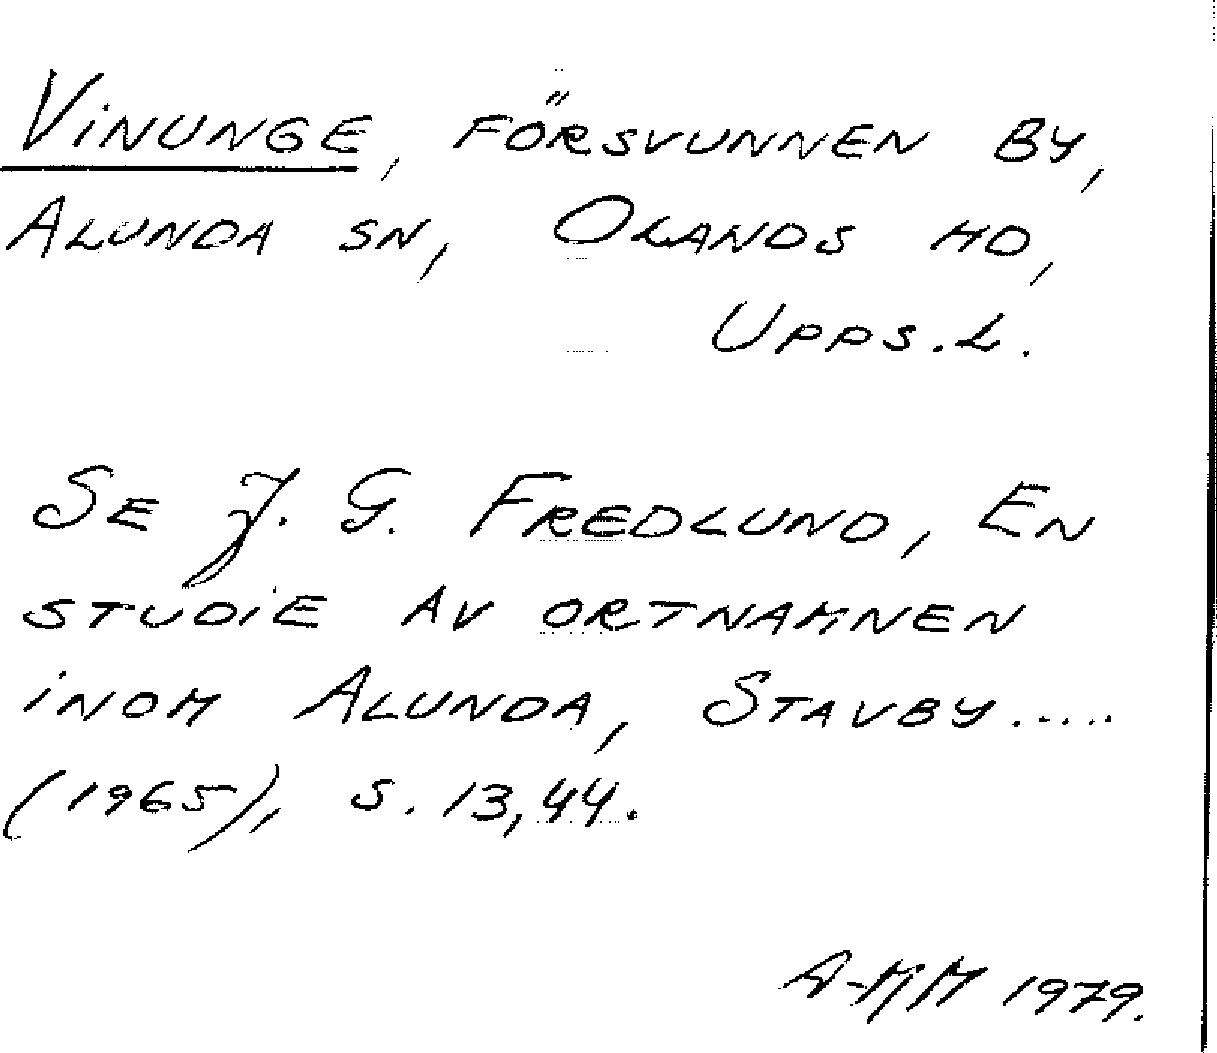 Vinunge, försvunnen by,
Alunda sn, Olands hd,
Upps. L.
Se J. G. Fredlund, En
studie av ortnamnen
inom Alunda, Stavby.....
(1965), s. 13, 44.
A-MM 1979.